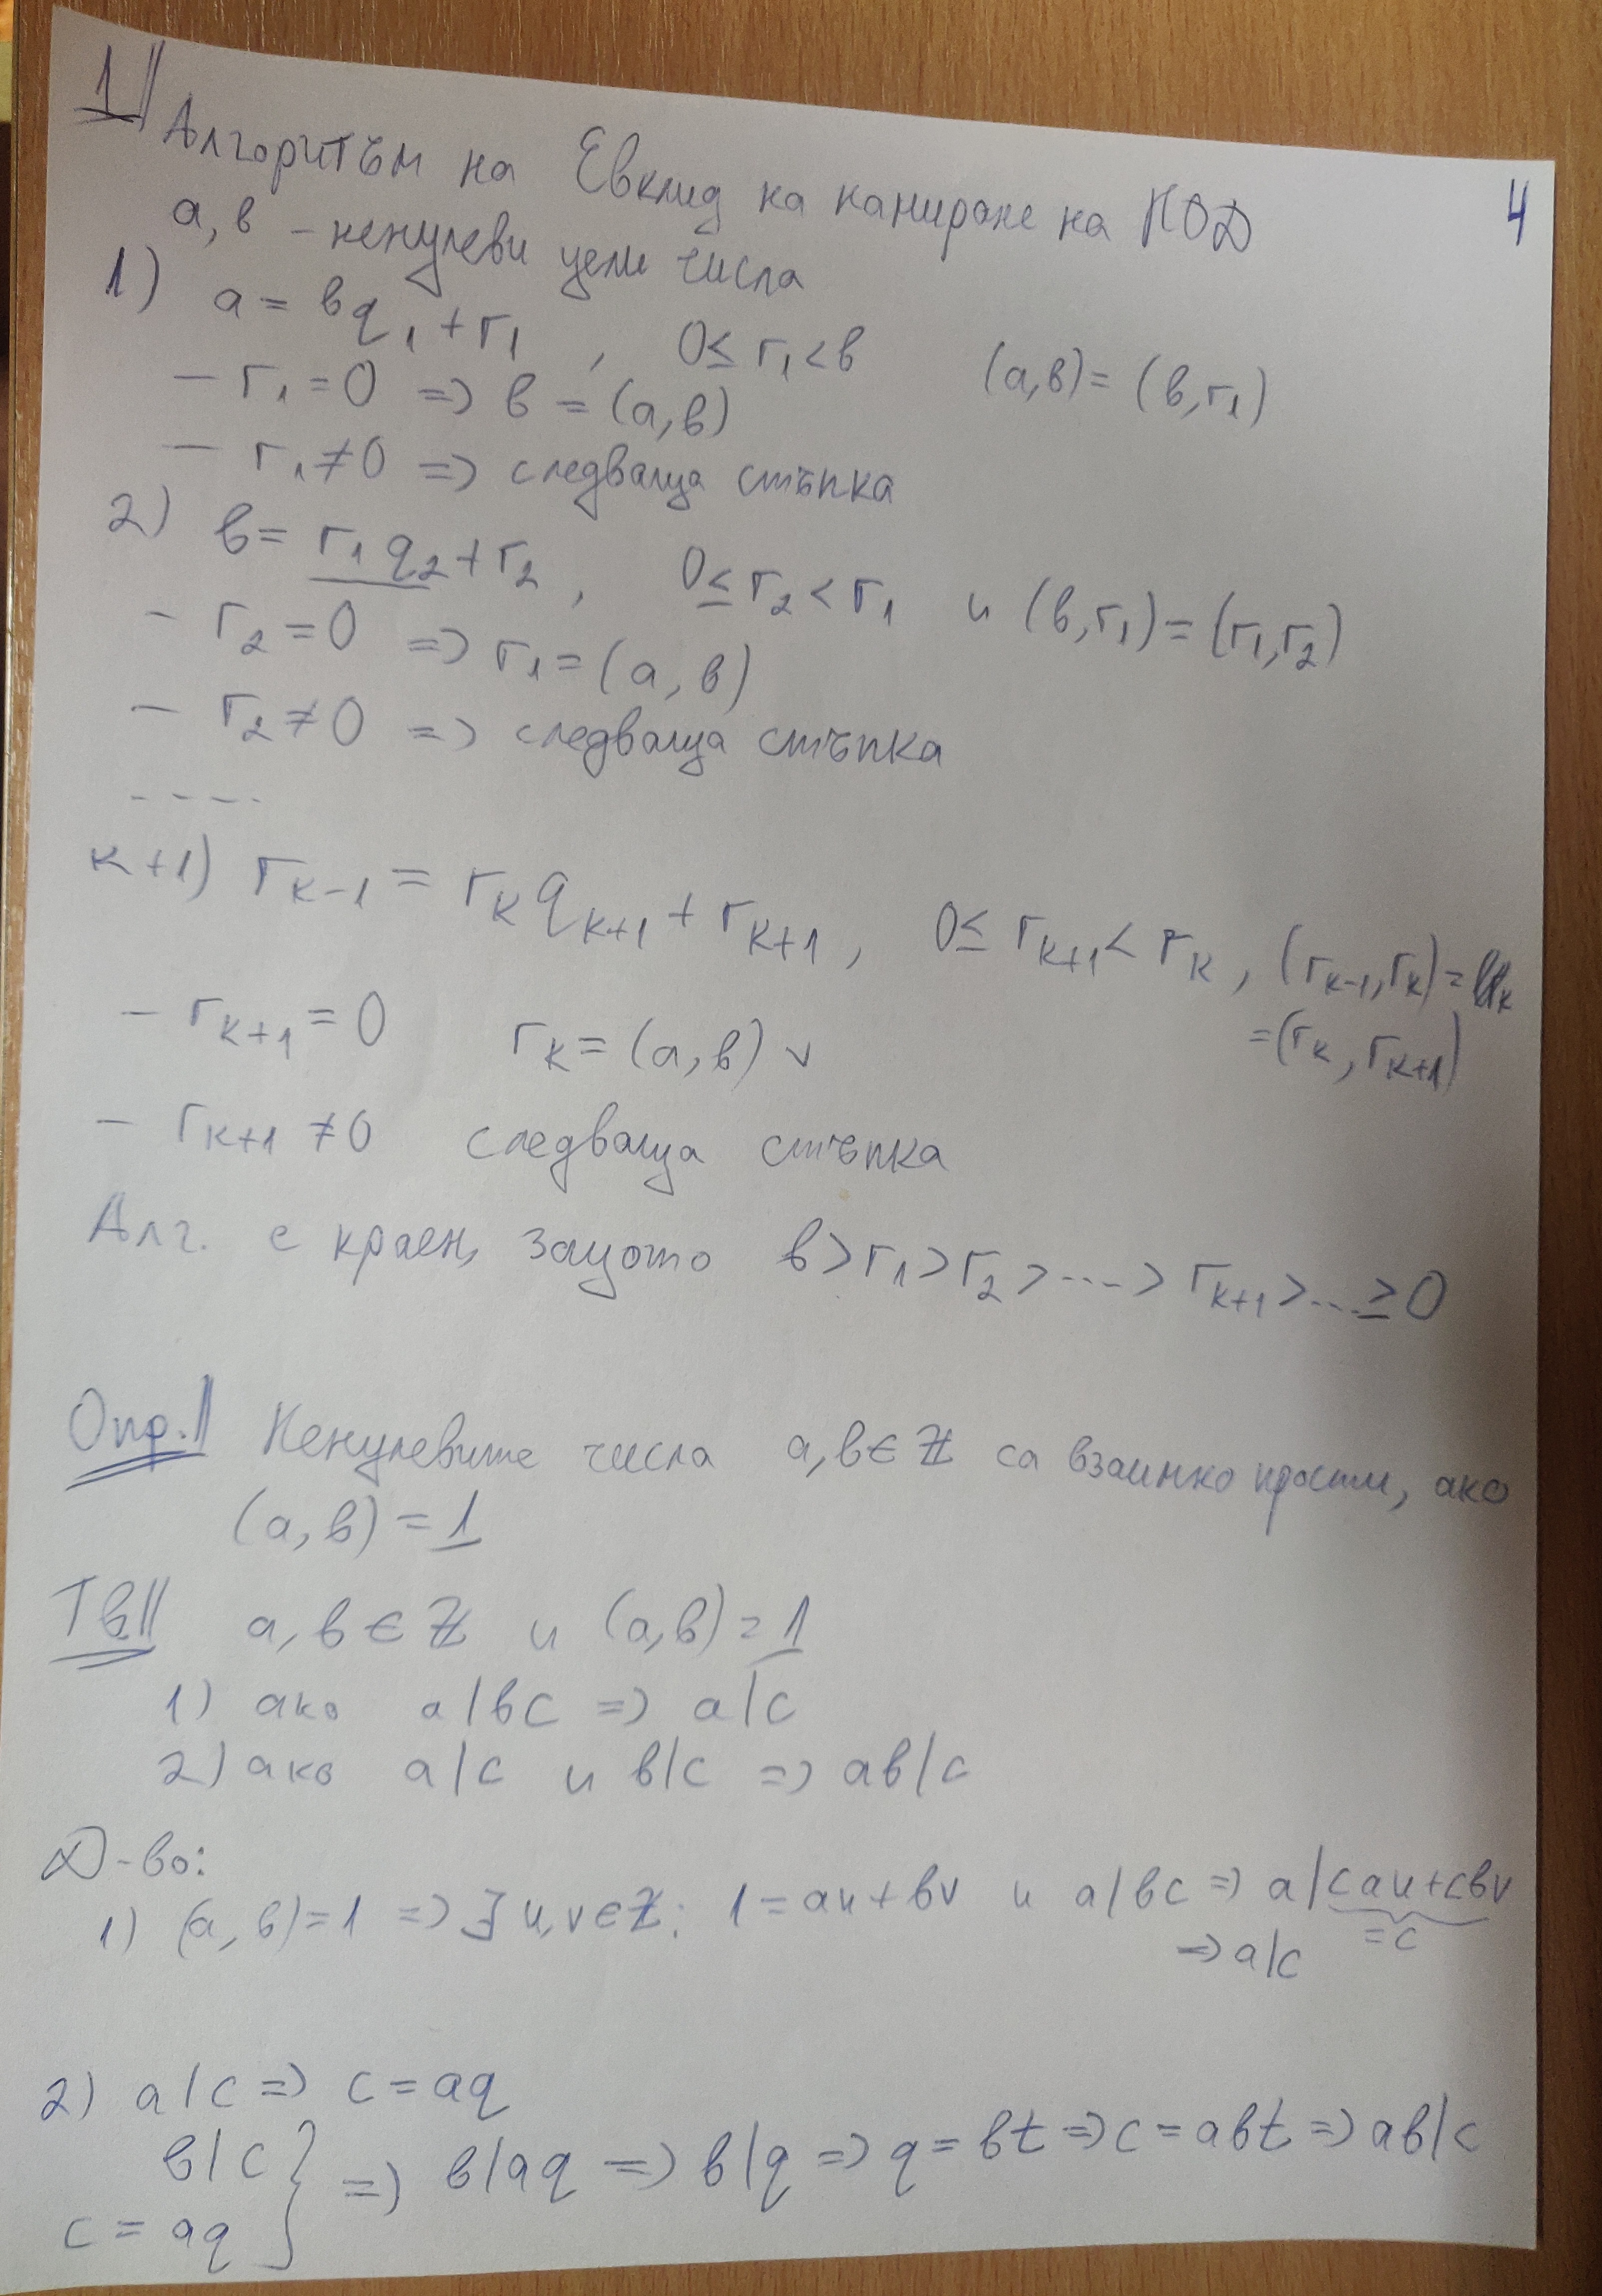 1||
4
Алгоритъм на Евклид на намиране на НОД
а, в - ненулеви цели числа
1) a = вq₁ + r₁ , 0 ≤ r₁ < в (a,в) = (в,r₁)
- r₁ = 0 => в = (a,в)
- r₁ ≠ 0 => следваща стъпка
2) в = r₁q₂ + r₂ , 0 ≤ r₂ < r₁ и (в,r₁) = (r₁,r₂)
- r₂ = 0 => r₁ = (a,в)
- r₂ ≠ 0 => следваща стъпка
- - - -
к+1) rₖ₋₁ = rₖqₖ₊₁ + rₖ₊₁ , 0 ≤ rₖ₊₁ < rₖ , (rₖ₋₁,rₖ) =
= (rₖ,rₖ₊₁)
- rₖ₊₁ = 0 rₖ = (a,в) v
- rₖ₊₁ ≠ 0 следваща стъпка
Алг. е краен, защото в > r₁ > r₂ > ... > rₖ₊₁ > ... ≥ 0
Опр.|| Ненулевите числа a,в ∈ ℤ са взаимно прости, ако
(a,в) = 1
Тв|| a,в ∈ ℤ и (a,в) = 1
1) ако a/вc => a/c
2) ако a/c и в/c => aв/c
Д-во:
1) (a,в) = 1 => ∃ u,v ∈ ℤ: 1 = au + вv и a/вc => a/cau + cвv
= c
=> a/c
2) a/c => c = aq
в/c } => в/aq => в/q => q = вt => c = aвt => aв/c
c = aq